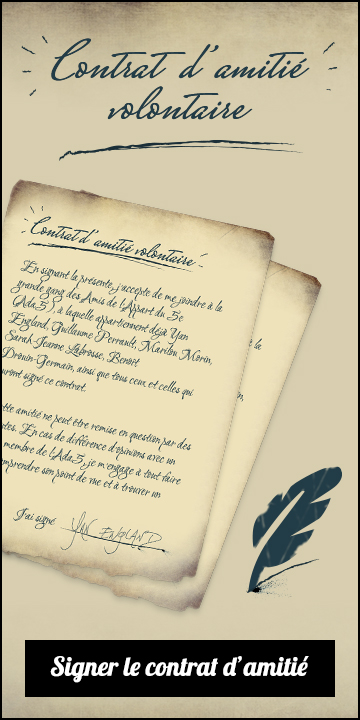 Contrat d'amitié
volontaire
Contrat d'amitié volontaire
En signant la présente, j'accepte de me joindre à la
grande gang des Amis de l'Appart du 5e
(Ada5), à laquelle appartiennent déjà Yan
England, Guillaume Perrault, Marilou Morin,
Sarah-Jeanne Labrosse, Benoit
Drouin-Germain, ainsi que tous ceux et celles qui
ont signé ce contrat.
amitié ne peut être remise en question par des
En cas de différence d'opinions avec un
membre de l'Ada5, je m'engage à tout faire
son point de vue et à trouver un
J'ai signé YAN ENGLAND
la
Signer le contrat d'amitié